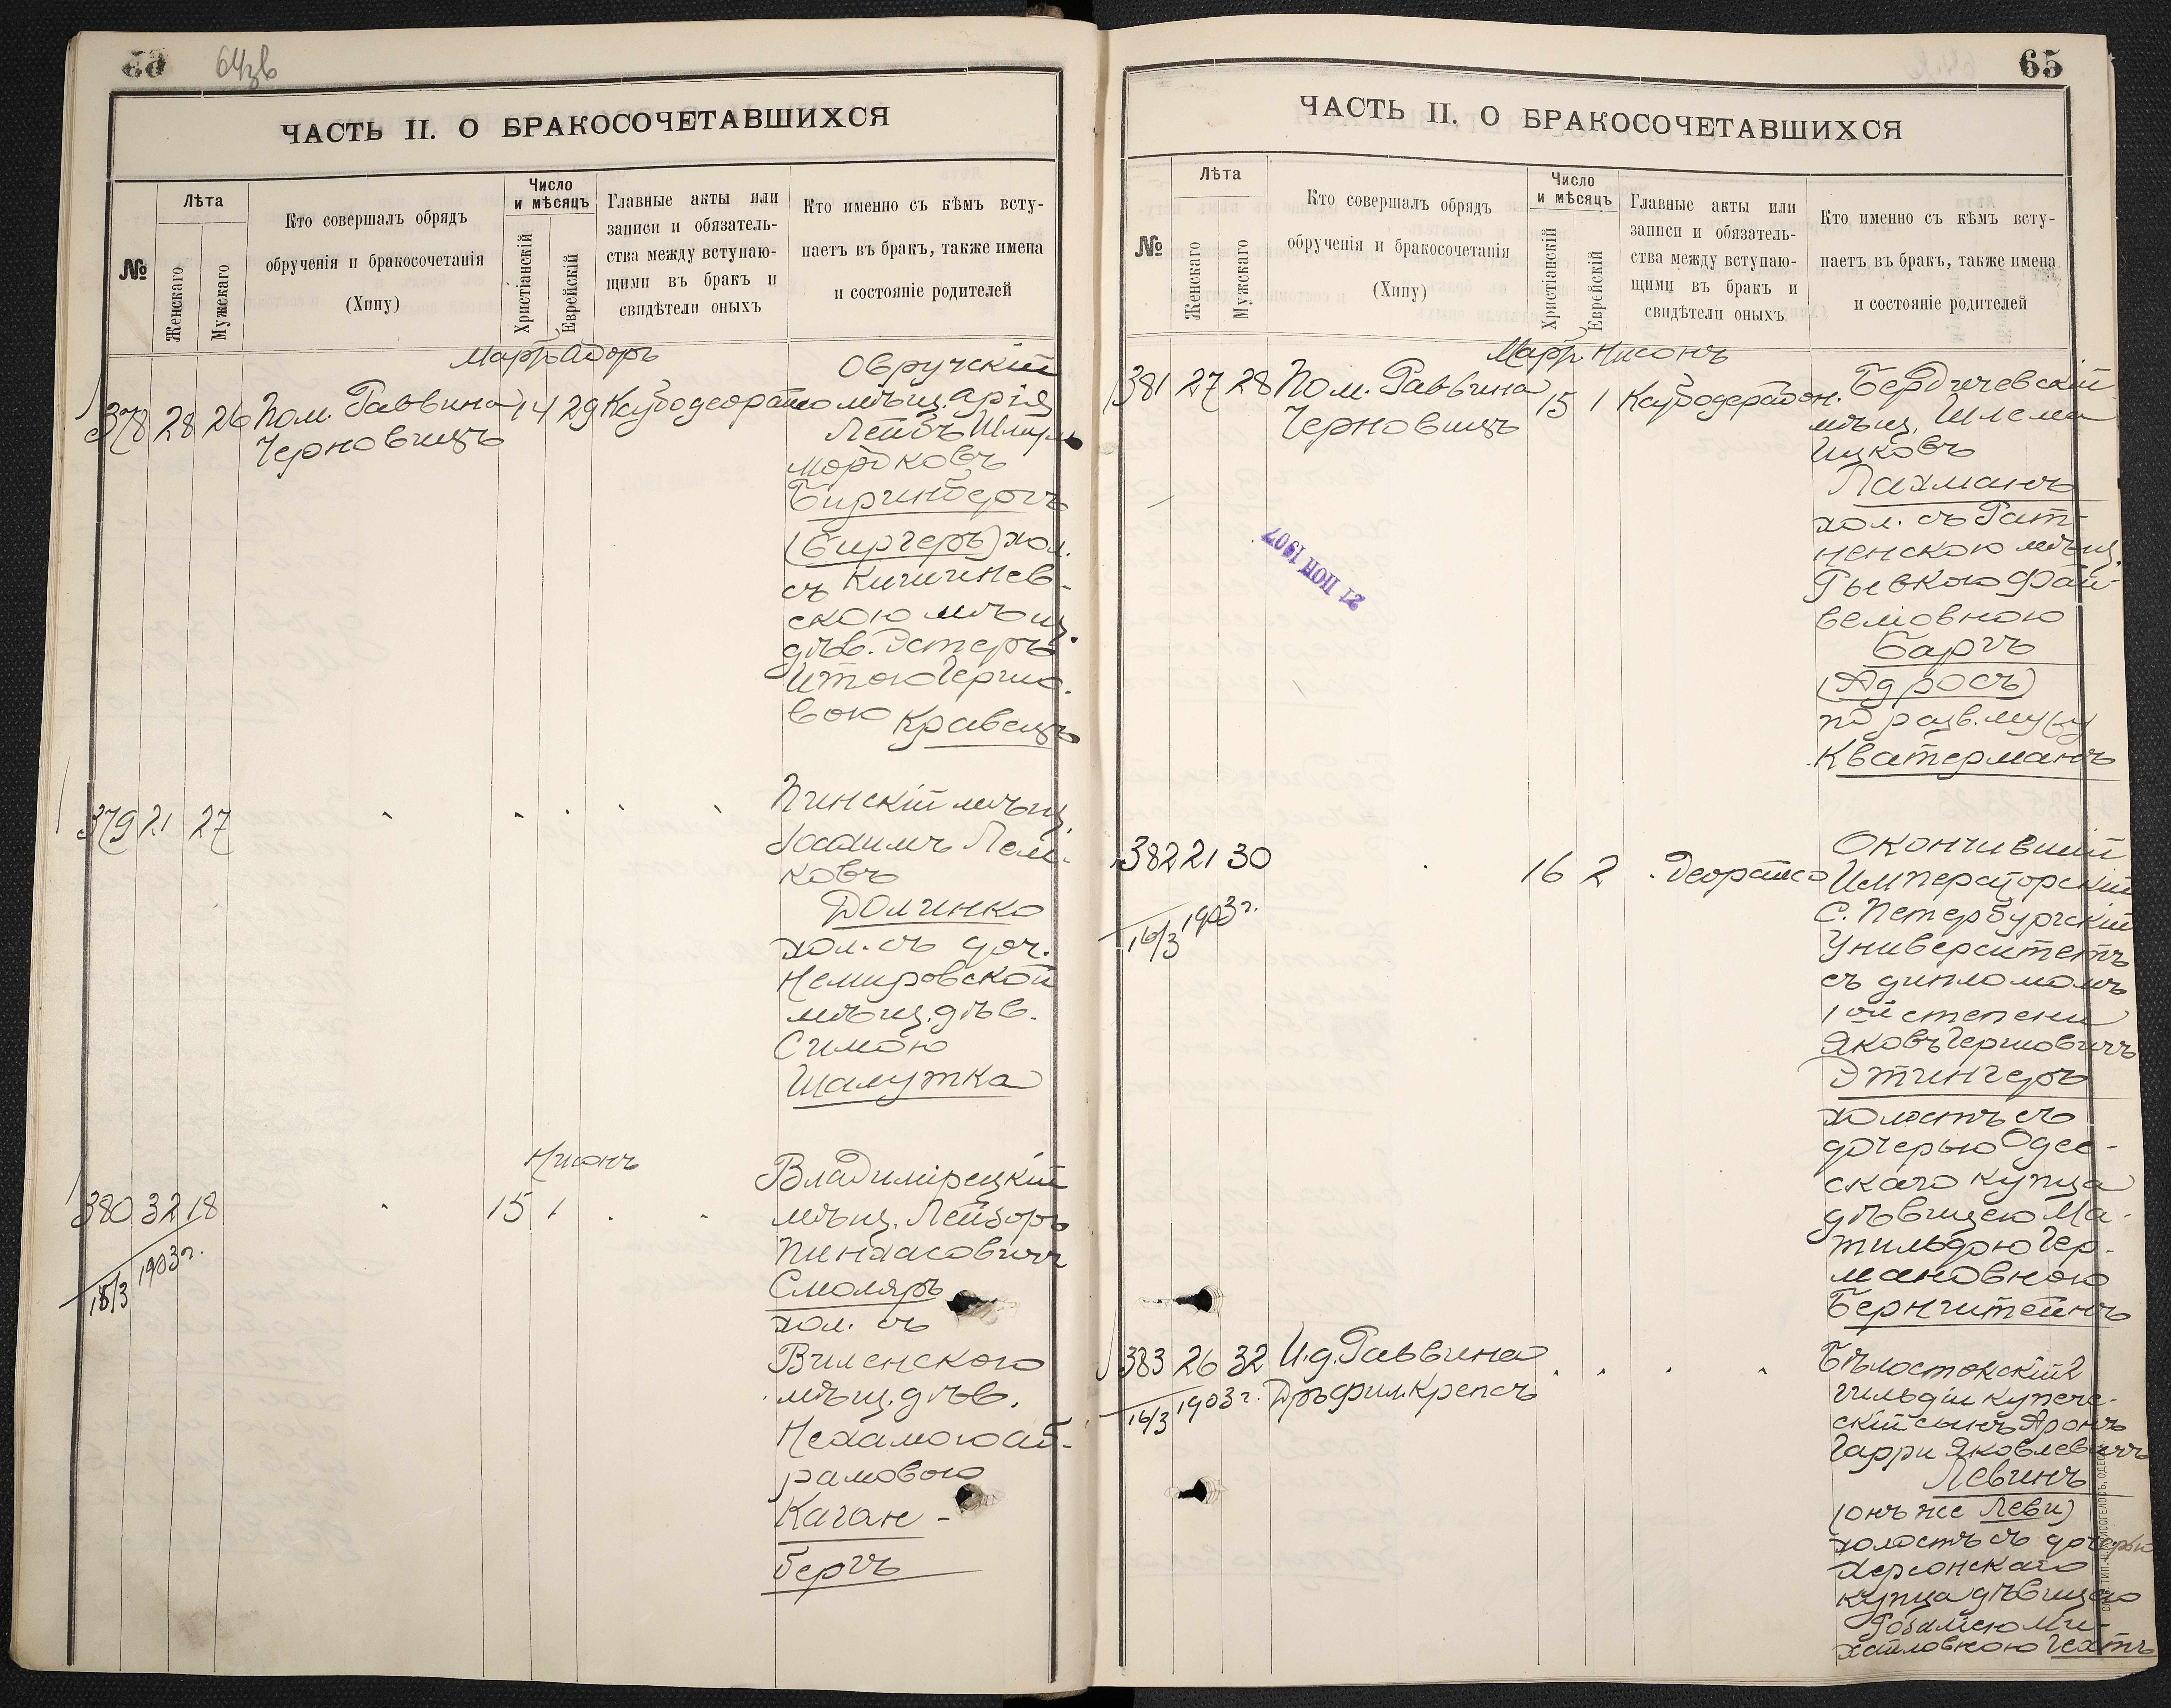 64зв
ЧАСТЬ II. О БРАКОСОЧЕТАВШИХСЯ
№
Лѣта
Женскаго
Мужскаго
Кто совершалъ обрядъ
обрученія и бракосочетанія
(Хипу)
Число
и мѣсяцъ
Христіанскій
Еврейскій
Главные акты или
записи и обязатель-
ства между вступаю-
щими въ бракъ и
свидѣтели оныхъ
Кто именно съ кѣмъ всту-
паетъ въ бракъ, также имена
и состояніе родителей
Мартъ Адоръ
378 28 26 Пом. Раввина 14 29
Черновицъ
Овручскій
мѣщ. Арія
Лейбъ Шмуль
Мордковъ
Биринбергъ
(Биргеръ) хол.
съ Кишинев-
скою мѣщ.
дѣв. Эстеръ
Итою Герше-
вою Кравецъ
379 21 27
Пинскій мѣщ.
Іоахимъ
ковъ
Долинко
хол. съ доч.
Немировской
мѣщ. дѣв.
Симою
Шалутка
Нисонъ
380 32 18 15 1
15/3 1903 г.
Владимірецкій
мѣщ. Лейзоръ
Пинхасовичъ
Смоляръ
хол. съ
Виленскою
мѣщ. дѣв.
Нехамою Аб-
рамовою
Каган-
бергъ
65
ЧАСТЬ II. О БРАКОСОЧЕТАВШИХСЯ
№
Лѣта
Женскаго
Мужскаго
Кто совершалъ обрядъ
обрученія и бракосочетанія
(Хипу)
Число
и мѣсяцъ
Христіанскій
Еврейскій
Главные акты или
записи и обязатель-
ства между вступаю-
щими въ бракъ и
свидѣтели оныхъ
Кто именно съ кѣмъ всту-
паетъ въ бракъ, также имена
и состояніе родителей
Мартъ Нисонъ
381 27 28 Пом. Раввина 15 1
Черновицъ
Бердичевскій
мѣщ. Шлема
Ицковъ
Лахманъ
хол. съ Рат-
ненскою мѣщ.
Рывкою Фай-
веліовною
Баргъ
(Адросъ)
по разв. мужу
Кватерманъ
21 ІЮН 1907
382 21 30 16 2
16/3 1903 г.
Окончившій
Императорскій
С. Петербургскій
Университетъ
съ дипломомъ
1ой степени
Яковъ Гершовичъ
Этингеръ
холостъ съ
дочерью Одес-
скаго купца
дѣвицею Ма-
тильдою Гер-
мановною
Бернштейнъ
383 26 32 И.д. Раввина
16/3 1903 г. Дръ фил. Крепсъ
Бѣлостокскій 2
гильдіи купече-
скій сынъ Аронъ
Гарри Яковлевичъ
Левинъ
(онъ же Леви)
холостъ съ дочерью
Херсонскаго
купца дѣвицею
Розаліею Ми-
хайловною Гехтъ